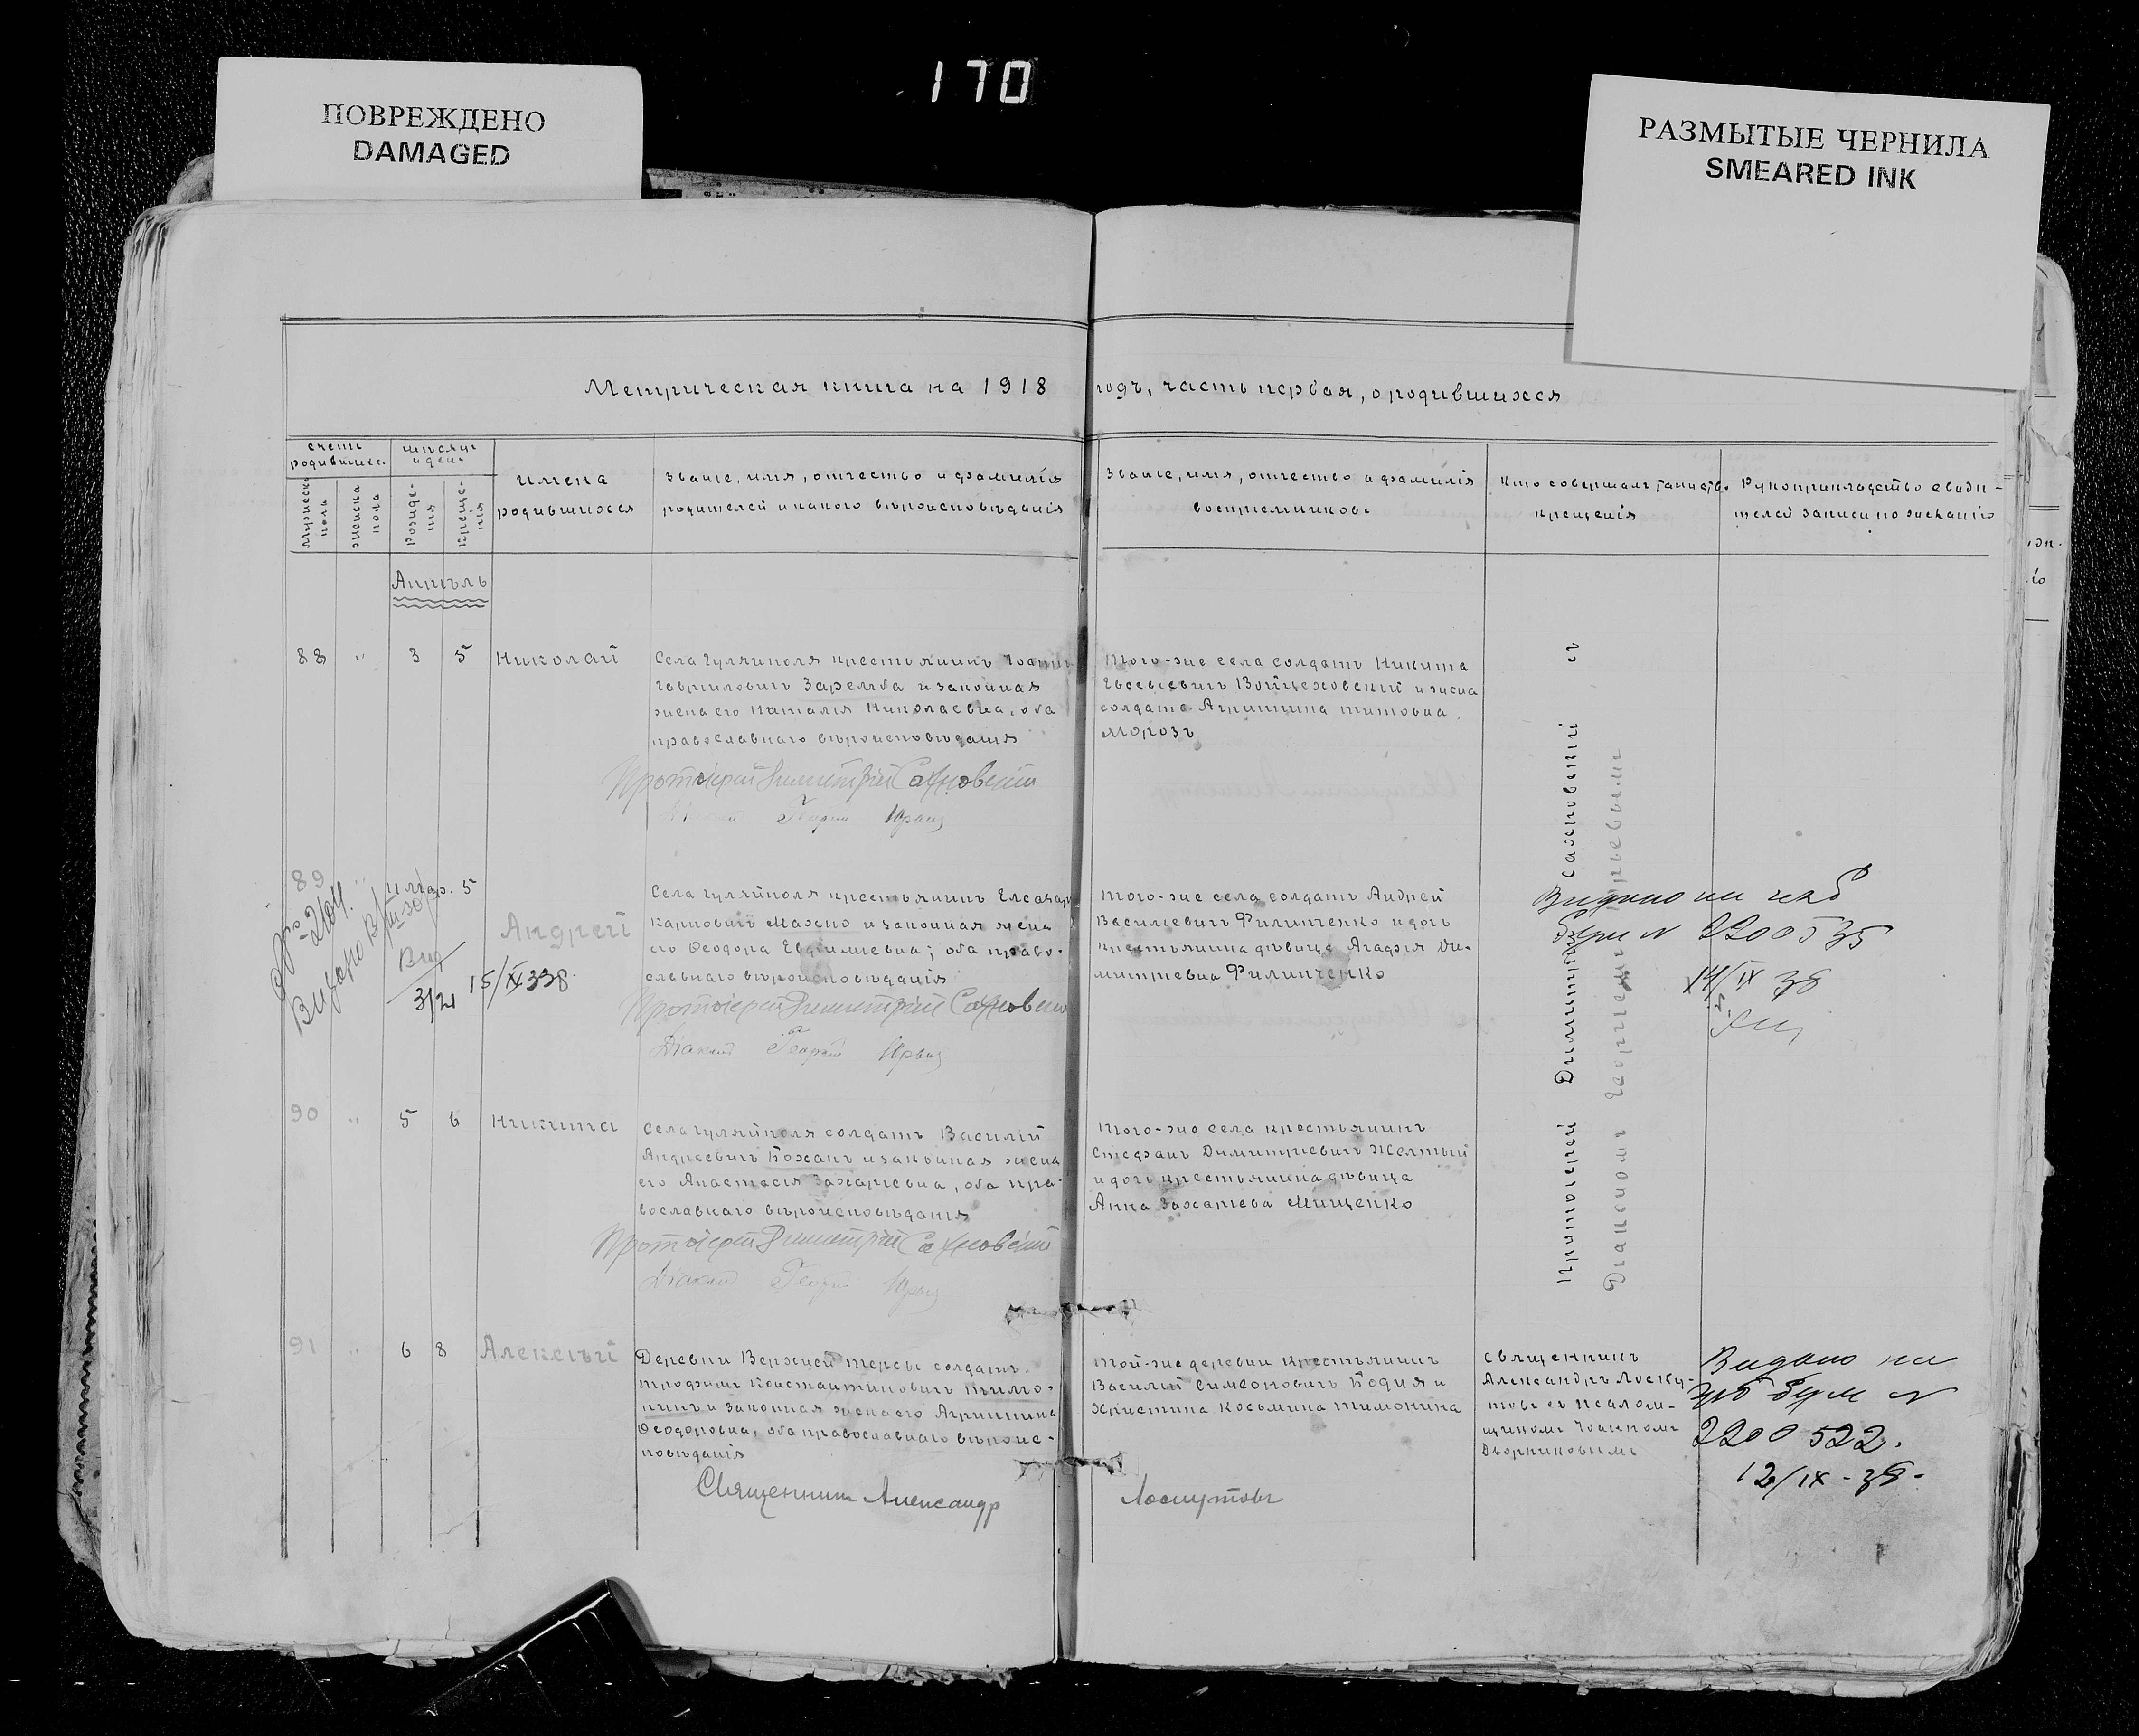 170
ПОВРЕЖДЕНО
DAMAGED
РАЗМЫТЫЕ ЧЕРНИЛА
SMEARED INK
Метрическая книга на 1918 годъ, часть первая, о родившихся
счетъ родившихс.
мужеска пола
женска пола
мѣсяцъ и день
рожде-
нія
креще-
нія
имена
родившихся
Званіе, имя, отчество и фамилія
родителей и какого вѣроисповѣданія
Званіе, имя, отчество и фамилія
воспріемниковъ
Кто совершалъ таинств.
крещенія
Рукоприкладство свидѣ-
телей записи по желанію
Апрѣль
88 " 3 5 Николай
Села Гуляйполя крестьянинъ Іоаннъ
Гавриловичъ Заремба и законная
жена его Наталія Николаевна, оба
православнаго вѣроисповѣданія
Протоіерей Димитрій Сахновскій
Георгій
Того-же села солдатъ Никита
Евсевіевичъ Войцеховскій и жена
солдата Агриппина Титовна
Морозъ
89 " 5
Андрей
Села Гуляйполя крестьянинъ Елеазаръ
Карповичъ Махно и законная жена
его Ѳеодора Евфиміевна; оба право-
славнаго вѣроисповѣданія
Протоіерей Димитрій Сахновскій
Діаконъ Георгій
15/IX 38
Того-же села солдатъ Андрей
Василіевичъ Филипченко и дочь
крестьянина дѣвица Агафія Ди-
митріевна Филипченко
Видано на
№ 2200535
14/IX 38
90 " 5 6 Никита
Села Гуляйполя солдатъ Василій
Андреевичъ Коханъ и законная жена
его Анастасія Захаріевна, оба пра-
вославнаго вѣроисповѣданія
Протоіерей Димитрій Сахновскій
Діаконъ Георгій
Того-же села крестьянинъ
Стефанъ Димитріевичъ Желтый
и дочь крестьянина дѣвица
Анна Захаріева Мищенко
Протоіерей Димитрій Сахновскій съ
Діакономъ Георгіемъ
91 " 6 8 Алексѣй
Деревни Верхней Терсы солдатъ
Трофимъ Константиновичъ
и законная жена его Агриппина
Ѳеодоровна, оба православнаго вѣроис-
повѣданія
Священникъ Александр Лоскутовъ
Той-же деревни крестьянинъ
Василій Симеоновичъ Бодня и
Христина Косьмина Тимонина
Священникъ
Александръ Лоску-
товъ съ псалом-
щикомъ Іоанномъ
Дворниковымъ
Видано на
бум №
2200522.
12/IX-38.